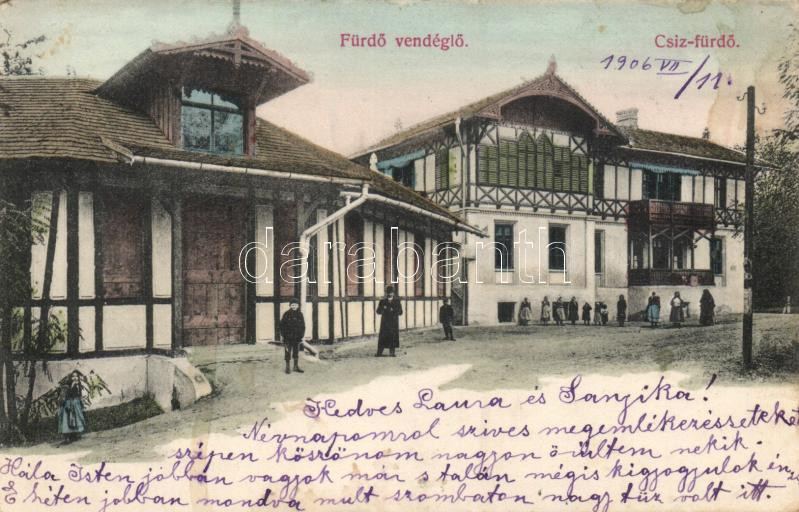 Fürdő vendéglő.
Csiz-fürdő.
1906 VII/11.
darabanth
Kedves Laura és Sanyika!
Névnapomrol szives megemlékezéssetekket
szépen köszönöm nagyon örültem nekik.
Hála Isten jobban vagyok már s talán mégis kigyogyulok én
E héten jobban mondva mult szombaton nagy tüz volt itt.